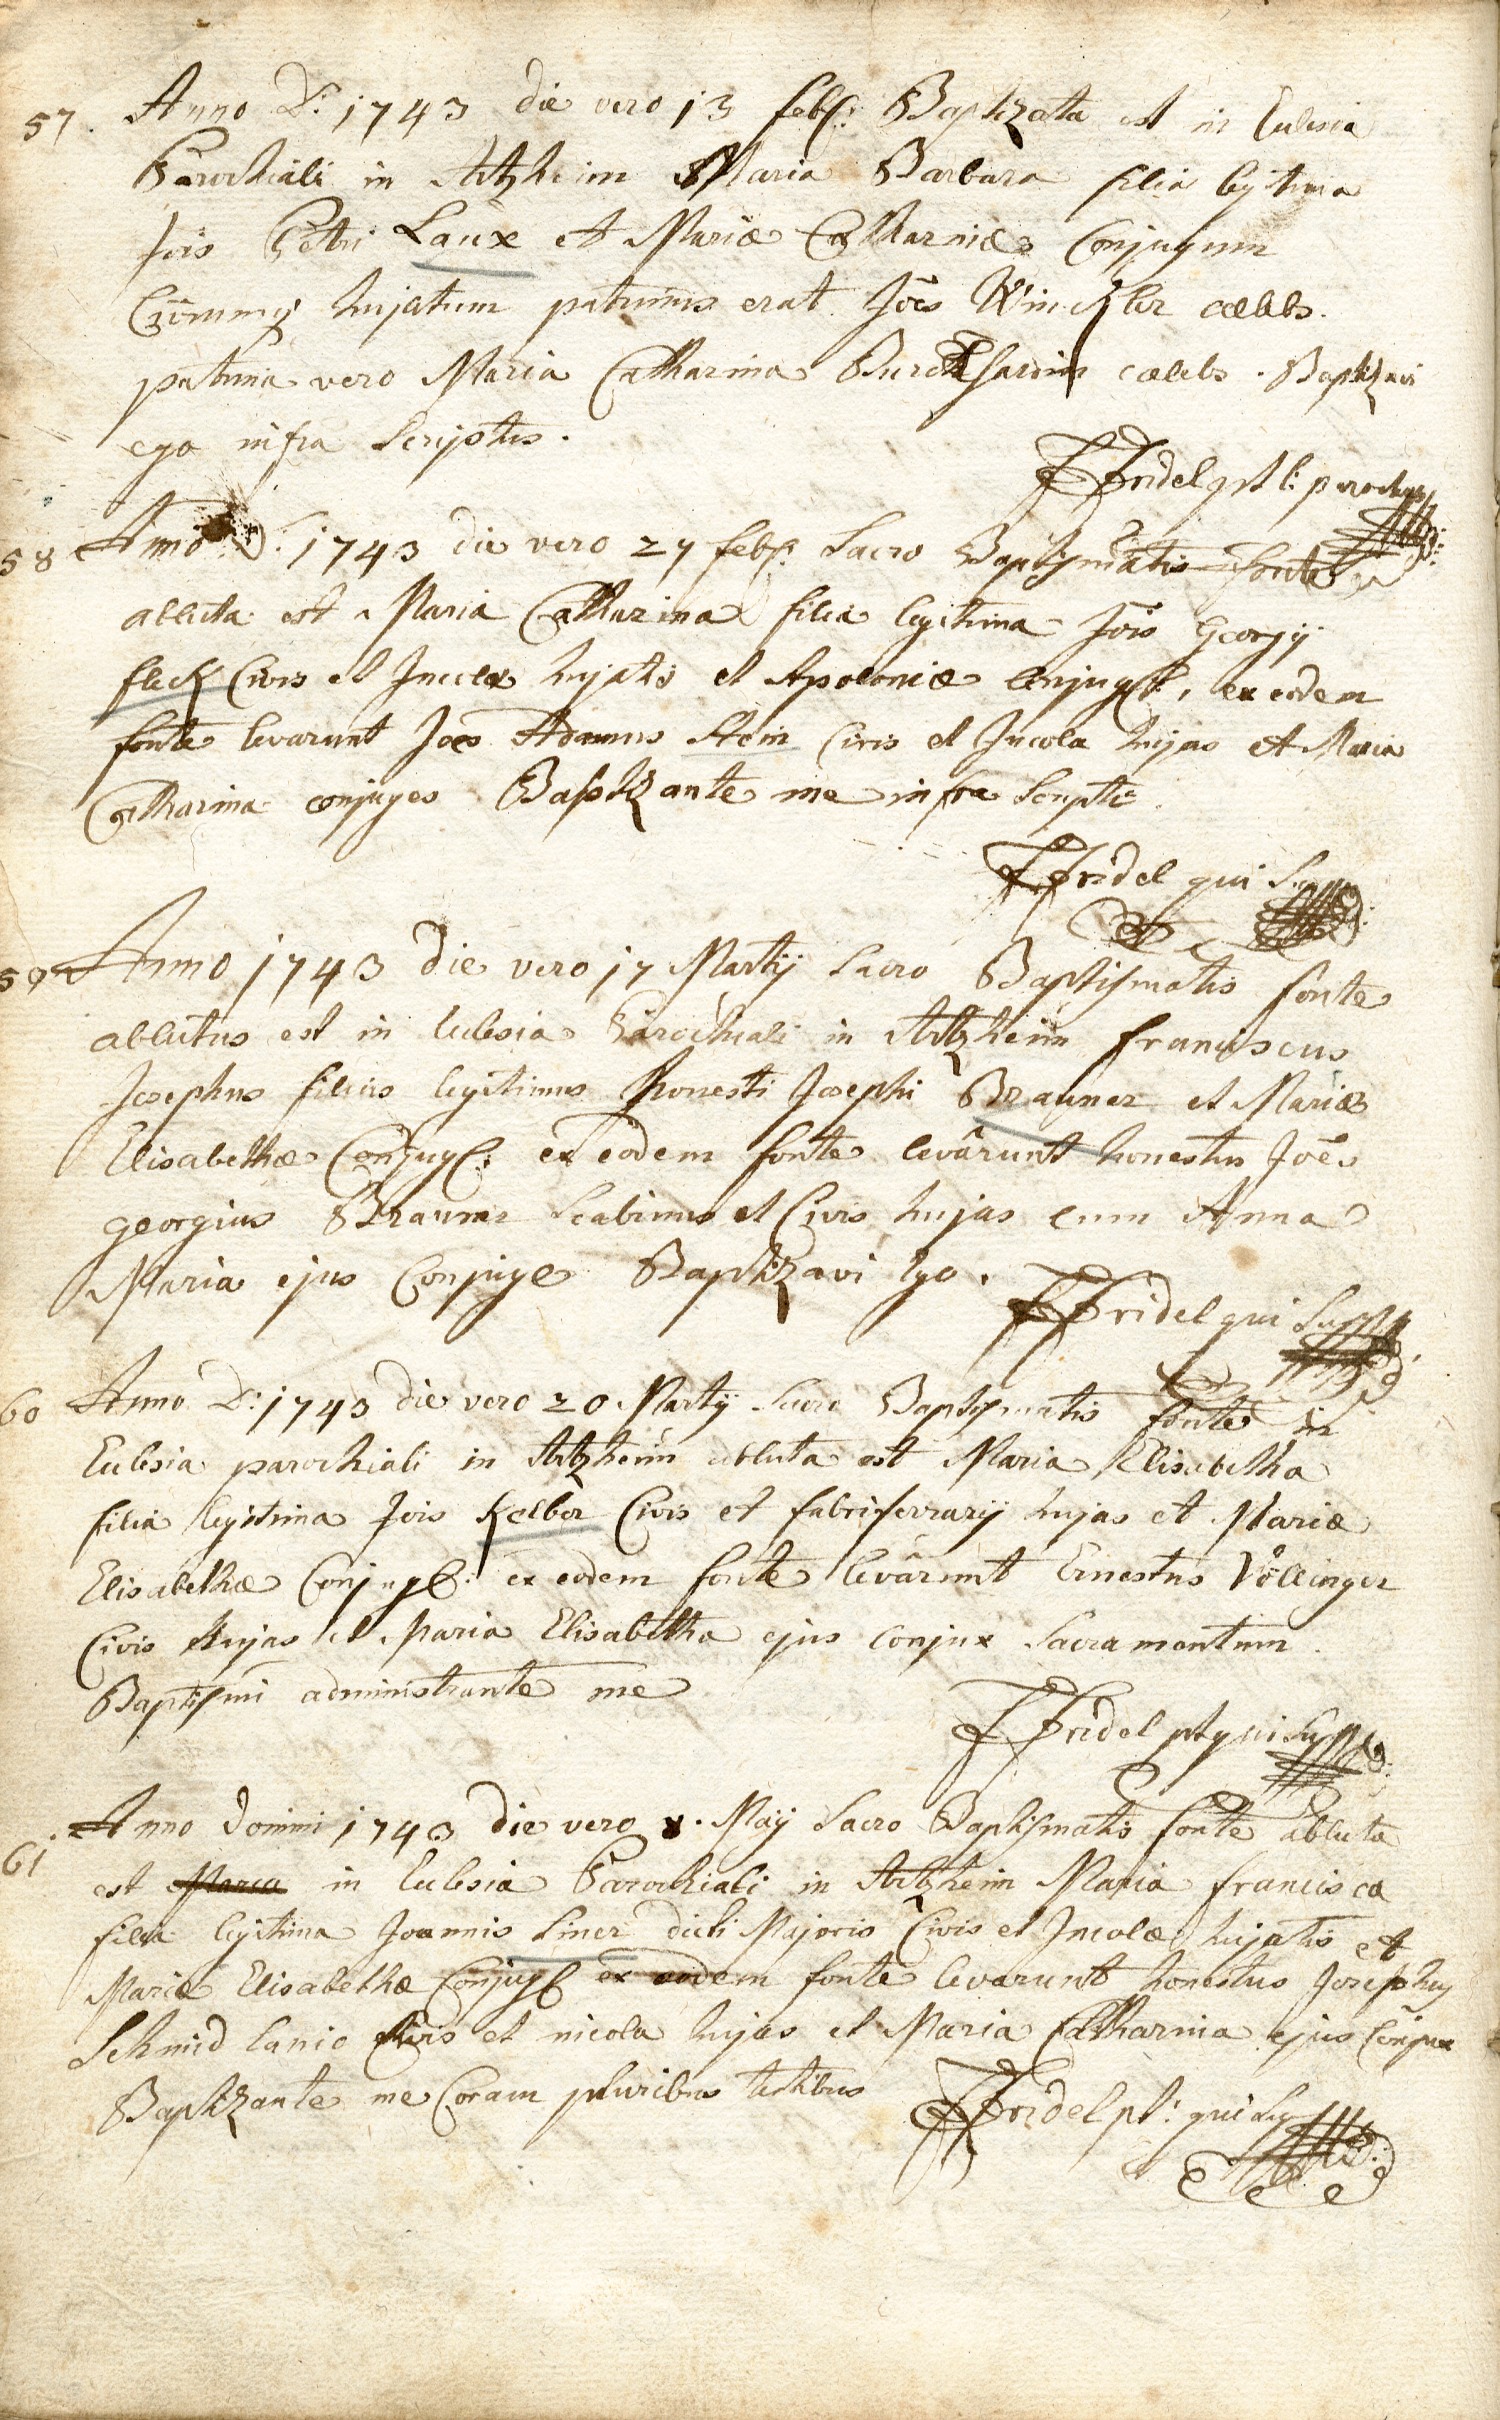 57. Anno D: 1743 die vero 13 feb: Baptizata est in Ecclesia
Parochiali in Artzheim Maria Barbara filia legitima
Jois Petri Laux et Mariæ Catharinæ Conjugum
hujatum patrinus erat Joes Winckler cælebs.
patrina vero Maria Catharina cælebs. Baptizavi
ego infra Scriptus.
FFridel pst l: parochus
58 Anno D: 1743 die vero 27 feb: Sacro Baptismatis fonte
abluta est Maria Catharina filia legitima Jois Georgij
fleck Civis et Incolæ hujatis et Apoloniæ Conjug:, ex eodem
fonte levarunt Joes Adamus Stein Civis et Incola hujas et Maria
Catharina conjuges Baptizante me infra Scripto
FFridel qui Sup
59 Anno 1743 die vero 17 Martij Sacro Baptismatis fonte
ablutus est in Ecclesia Parochiali in Artzheim franciscus
Josephus filius legitimus honesti Josephi Brauner et Mariæ
Elisabethæ Conjug: ex eodem fonte levârunt honestus Joes
georgius Brauner Scabinus et Civis hujas cum Anna
Maria ejus Conjuge Baptizavi Ego.
FFridel qui Supp
60 Anno D: 1743 die vero 20 Martij Sacro Baptismatis fonte in
Ecclesia parochiali in Artzheim abluta est Maria Elisabetha
filia legitima Jois Kelber Civis et fabriferrarij hujas et Mariæ
Elisabethæ Conjug: ex eodem fonte levârunt Ernestus Völlinger
Civis hujas et Maria Elisabetha ejus conjux Sacramentum
Baptismi administrante me
FFridel pst qui Sup
61 Anno Domini 1743 die vero Maij Sacro Baptismatis fonte abluta
est Maria in Ecclesia Parochiali in Artzheim Maria francisca
filia legitima Joannis Siner dicti Majoris Civis et Incolæ hujatis et
Mariæ Elisabethæ Conjug ex eodem fonte levarunt honestus Josephus
Schmid Lanio Civis et incola hujas et Maria Catharina ejus Conjux
Baptizante me Coram pluribus testibus
FFridel pst: qui Sup